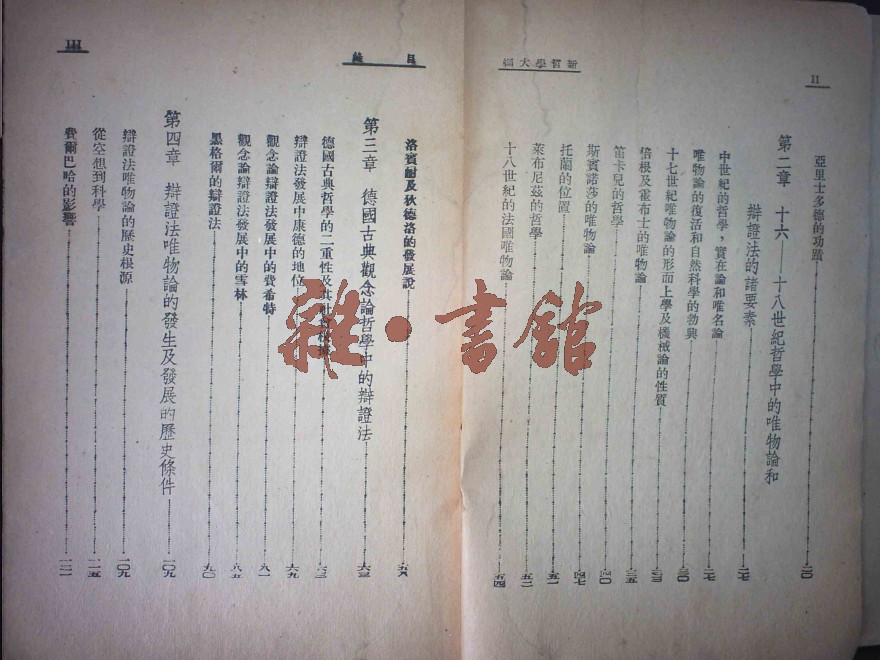 II
新哲學大綱
亞里士多德的功蹟 二〇
第二章 十六——十八世紀哲學中的唯物論和
辯證法的諸要素 二七
中世紀的哲學，實在論和唯名論 二七
唯物論的復活和自然科學的勃興 三〇
十七世紀唯物論的形而上學及機械論的性質 三三
倍根及霍布士的唯物論 三五
笛卡兒的哲學 四〇
斯賓諾莎的唯物論 四七
托蘭的位置 五一
萊布尼茲的哲學 五二
十八世紀的法國唯物論 五四
目錄
III
洛賓耐及狄德洛的發展說 五八
第三章 德國古典觀念論哲學中的辯證法 六三
德國古典哲學的二重性及其社會根源 六三
辯證法發展中康德的地位 六九
觀念論辯證法發展中的費希特
觀念論辯證法發展中的雪林 八五
黑格爾的辯證法 九〇
第四章 辯證法唯物論的發生及發展的歷史條件 一〇九
辯證法唯物論的歷史根源 一〇九
從空想到科學 一一五
費爾巴哈的影響 一二一
雜·書館